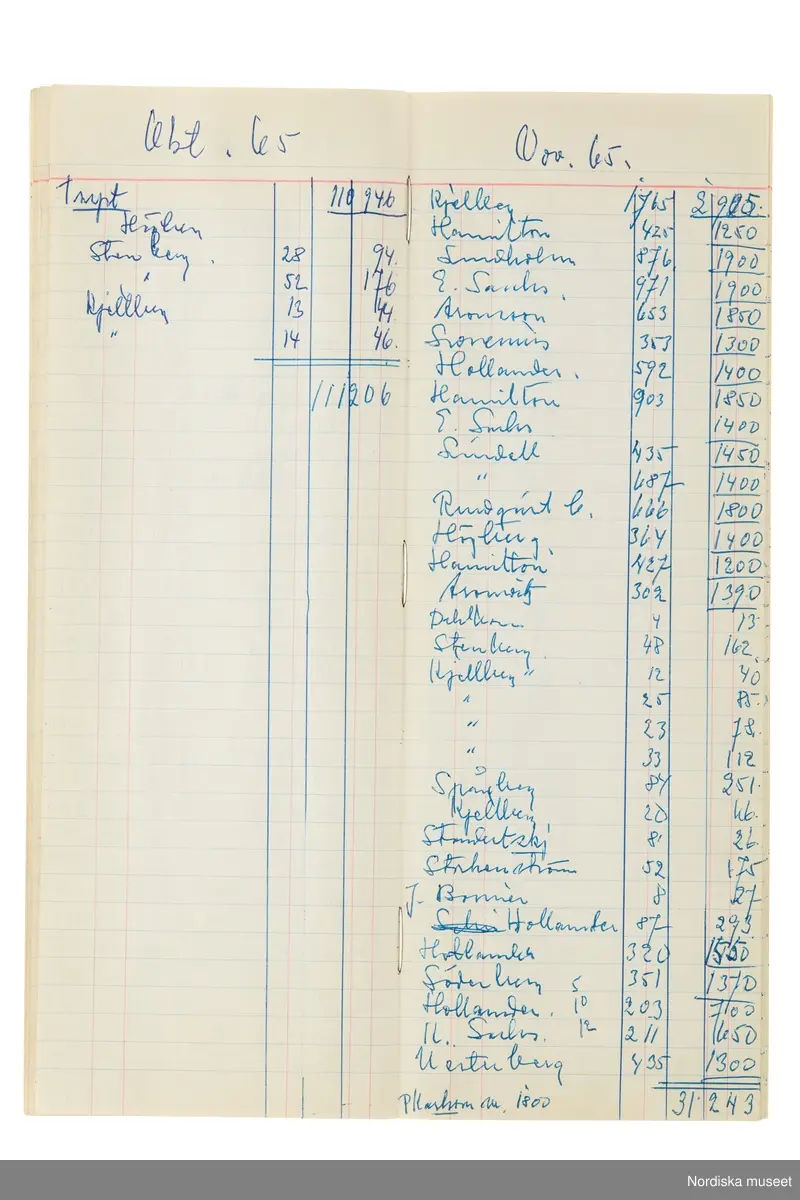 Okt. 65
Trspt 110 946
Högberg
Stenberg. 28 94.
" 52 176
Kjellberg 13 44.
" 14 46.
111 206
Nov. 65.
Kjellberg 1765
Hamilton 425 1250
Lundholm 876 1900
E. Sachs. 971 1900
Aronsson 653 1850
353 1300
Hollander. 592 1400
Hamilton 903 1850
E. Sachs 1400
Lindell 435 1450
" 687 1400
Rundqvist C. 666 1800
Högberg 364 1400
Hamilton 427 1200
302 1390
4 13
Stenberg 48 162
Kjellberg " 12 40
" 25 85.
" 23 78.
" 33 112
Spångberg 84 251.
Kjellberg 20 66.
8 26.
Stokenström 52 175
J. Bonnier 8 27
Hollander 87 293
Hollander 320 1550
Söderberg 5 351 1370
Hollander. 10 203 700
Sachs. 12 211 650
Westerberg 435 1300
1800 31 243
Nordiska museet